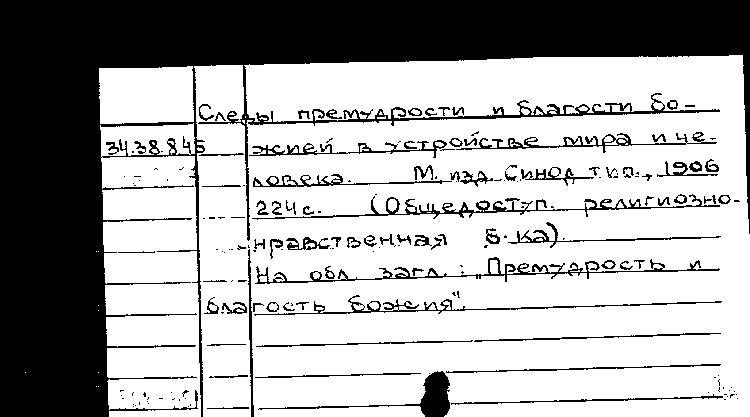 Следы премудрости и благости бо-
34.38.845 жией в устройстве мира и че-
ловека. М., изд. Синод. тип., 1906
224 с. (Общедоступ. религиозно-
нравственная б-ка).
На обл. загл.: „Премудрость и
благость божия".